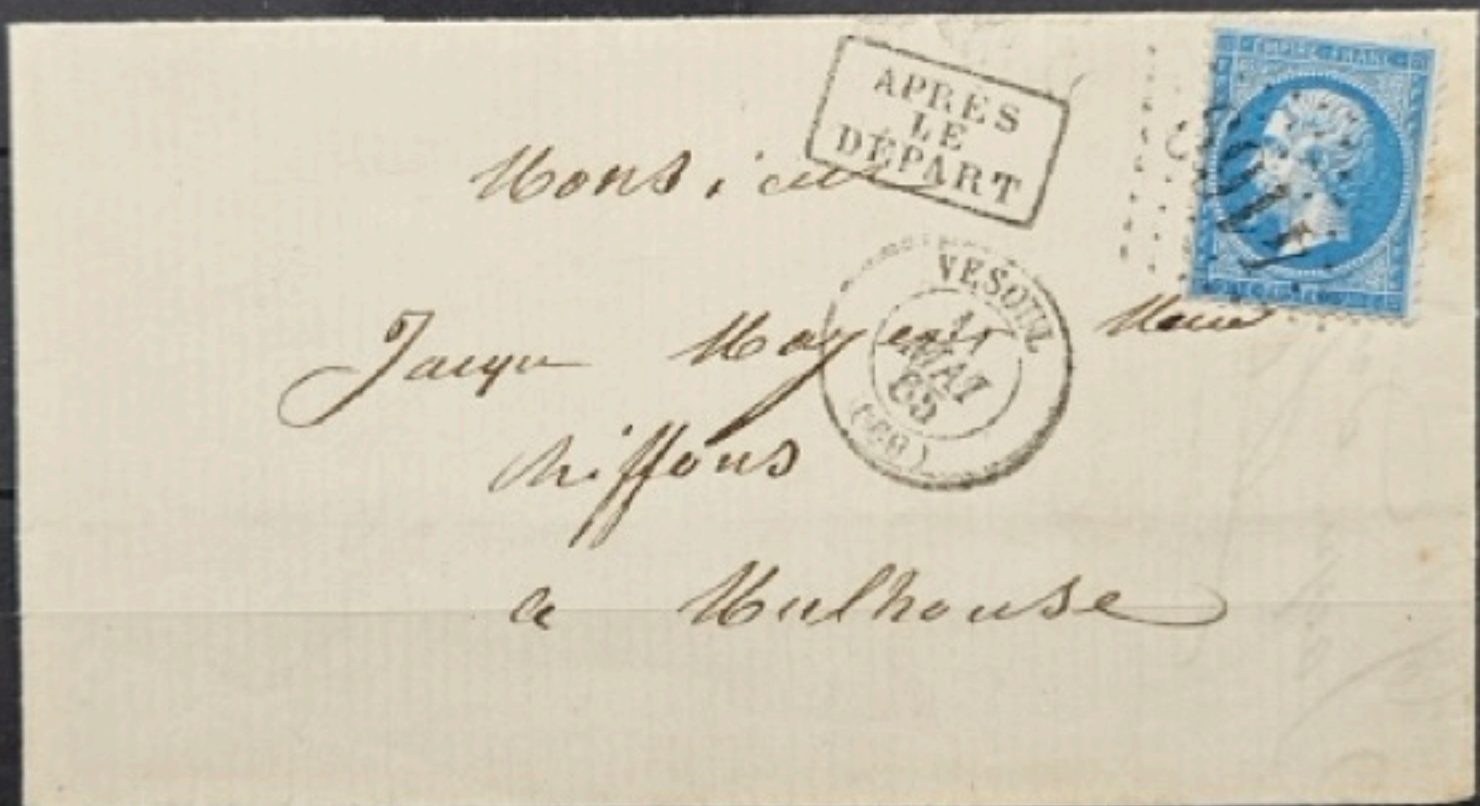 APRES
LE
DÉPART
EMPIRE FRANC
Monsieur
VESOUL
MAI
65
(69)
Jacque May
chiffons
a Mulhouse